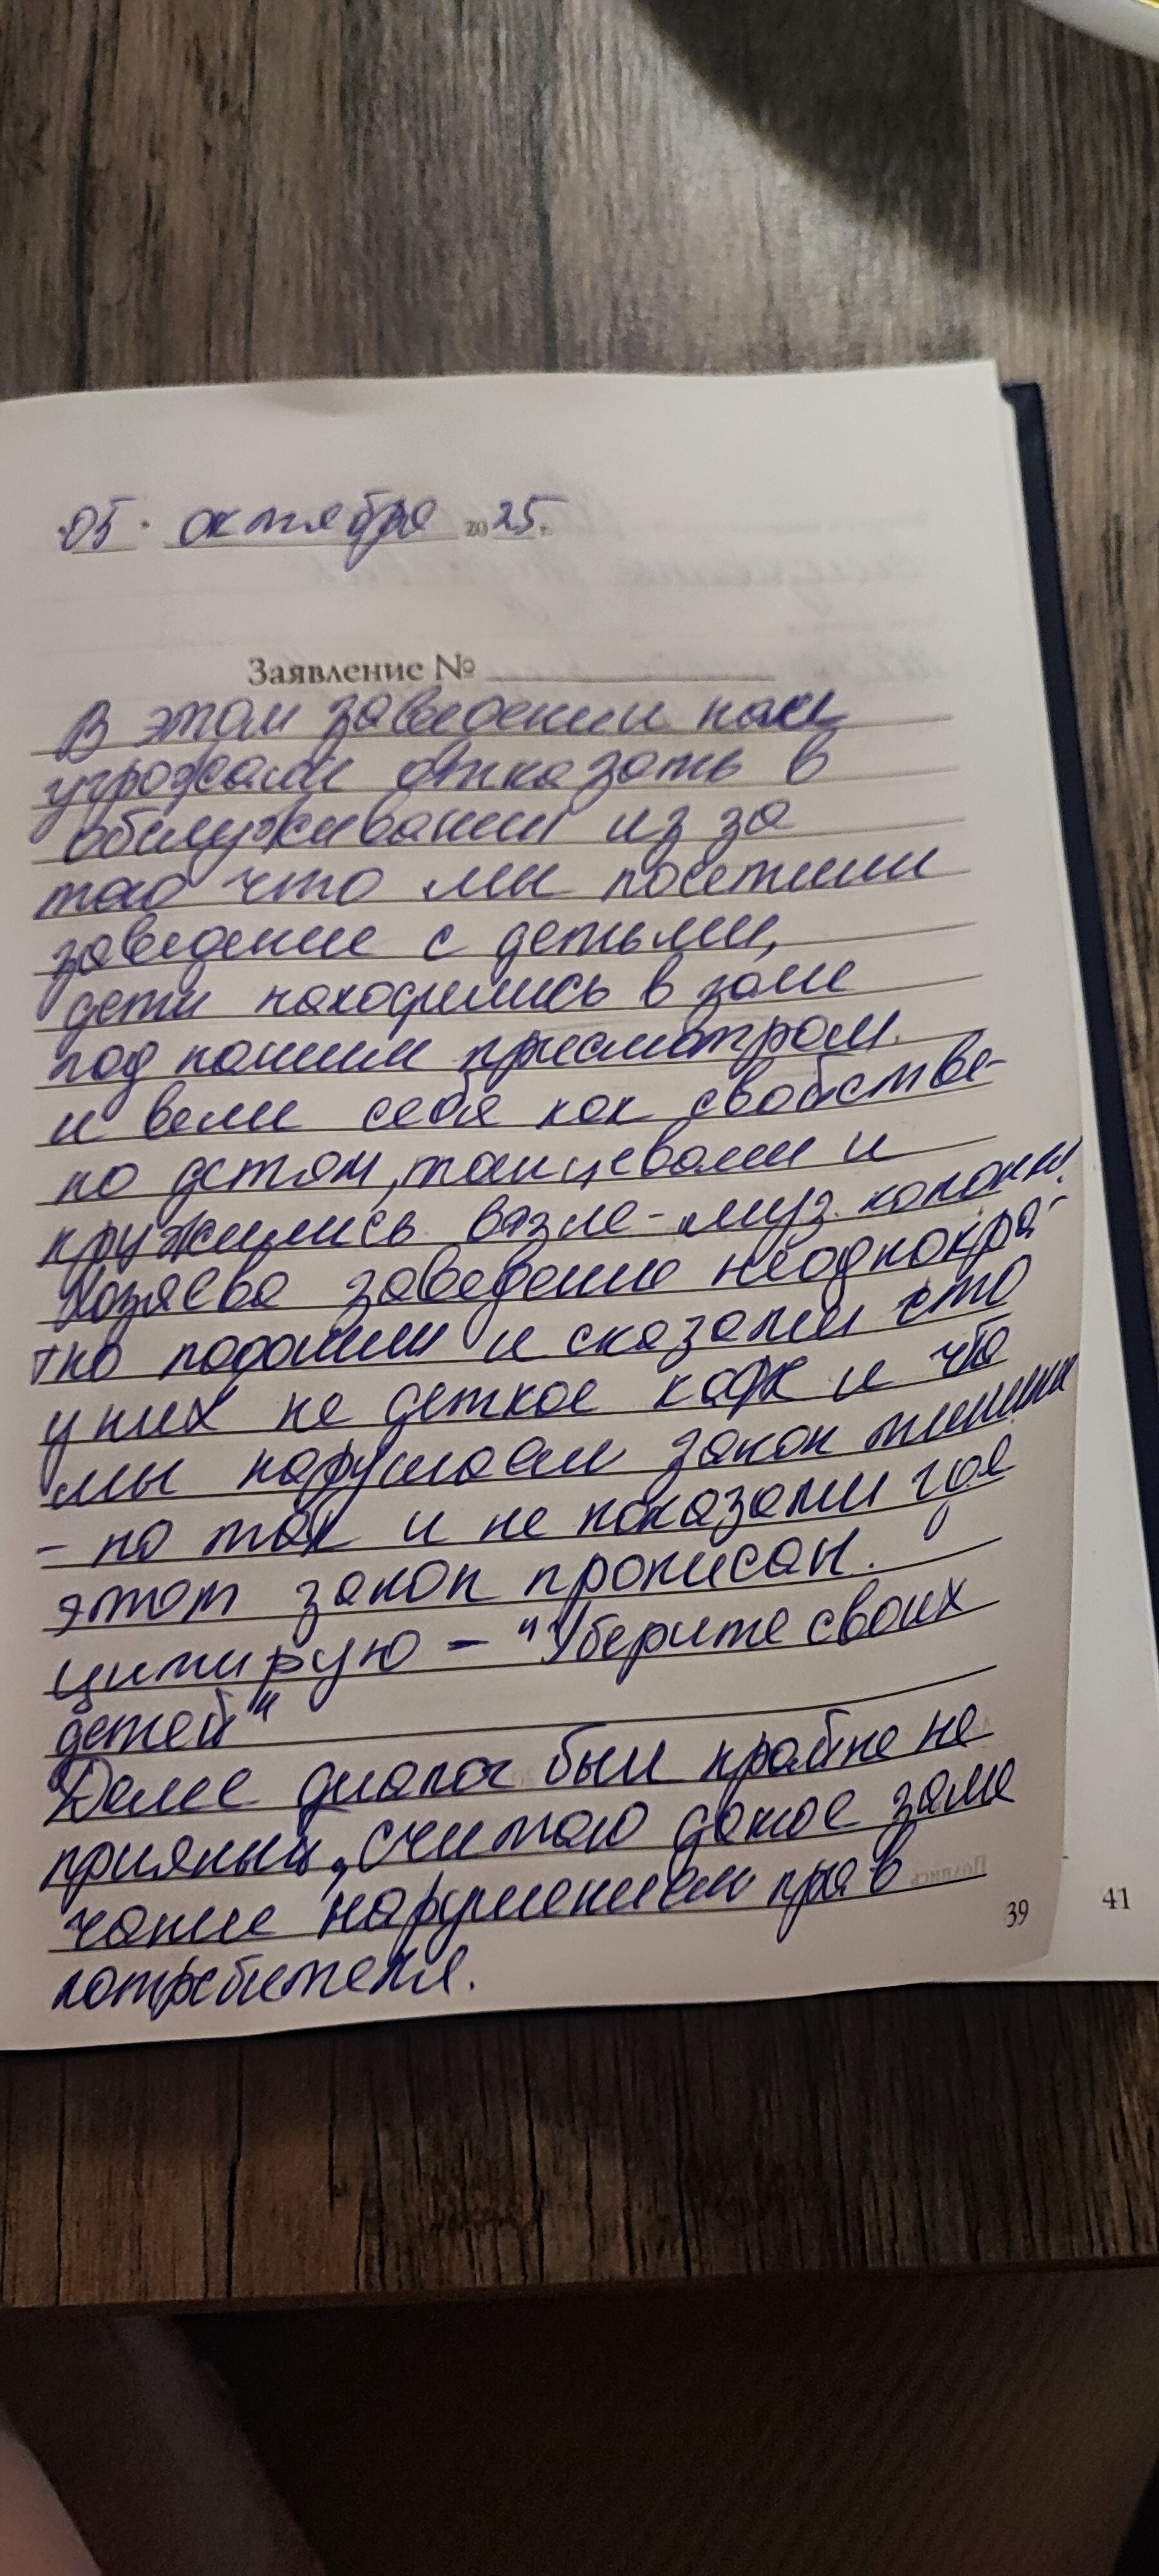 "05" октября 2025г.
Заявление №
В этом заведении нам
угрожали отказать в
обслуживании из за
того что мы посетили
заведение с детьми,
дети находились в зале
под нашим присмотром.
и вели себя как свойстве-
но детям, танцевали и
кружились возле - муз. колонны.
Хозяева заведение неоднокра-
тно подошли и сказали что
у них не деткое кафе и что
мы нарушаем закон тишины
- но так и не показали где
этот закон прописан.
цитирую - "Уберите своих
детей"
Далее диалог был крайне не
приятный, считаю даное заме
чание нарушением прав
потребителя.
39
41